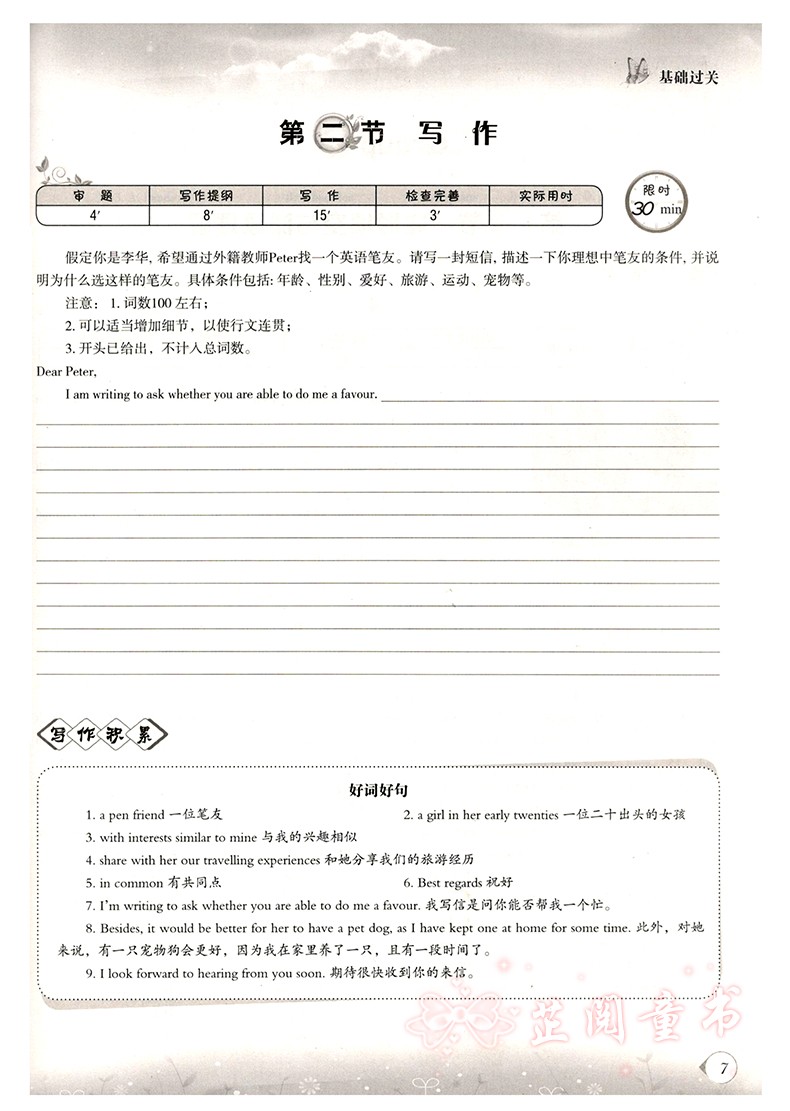 基础过关
第二节 写 作
审 题 写作提纲 写 作 检查完善 实际用时
4′ 8′ 15′ 3′
限时
30 min
假定你是李华, 希望通过外籍教师Peter找一个英语笔友。请写一封短信, 描述一下你理想中笔友的条件, 并说
明为什么选这样的笔友。具体条件包括: 年龄、性别、爱好、旅游、运动、宠物等。
注意： 1. 词数100 左右；
2. 可以适当增加细节，以使行文连贯；
3. 开头已给出，不计入总词数。
Dear Peter,
I am writing to ask whether you are able to do me a favour.
写作积累
好词好句
1. a pen friend 一位笔友 2. a girl in her early twenties 一位二十出头的女孩
3. with interests similar to mine 与我的兴趣相似
4. share with her our travelling experiences 和她分享我们的旅游经历
5. in common 有共同点 6. Best regards 祝好
7. I’m writing to ask whether you are able to do me a favour. 我写信是问你能否帮我一个忙。
8. Besides, it would be better for her to have a pet dog, as I have kept one at home for some time. 此外，对她
来说，有一只宠物狗会更好，因为我在家里养了一只，且有一段时间了。
9. I look forward to hearing from you soon. 期待很快收到你的来信。
芷阅童书
7